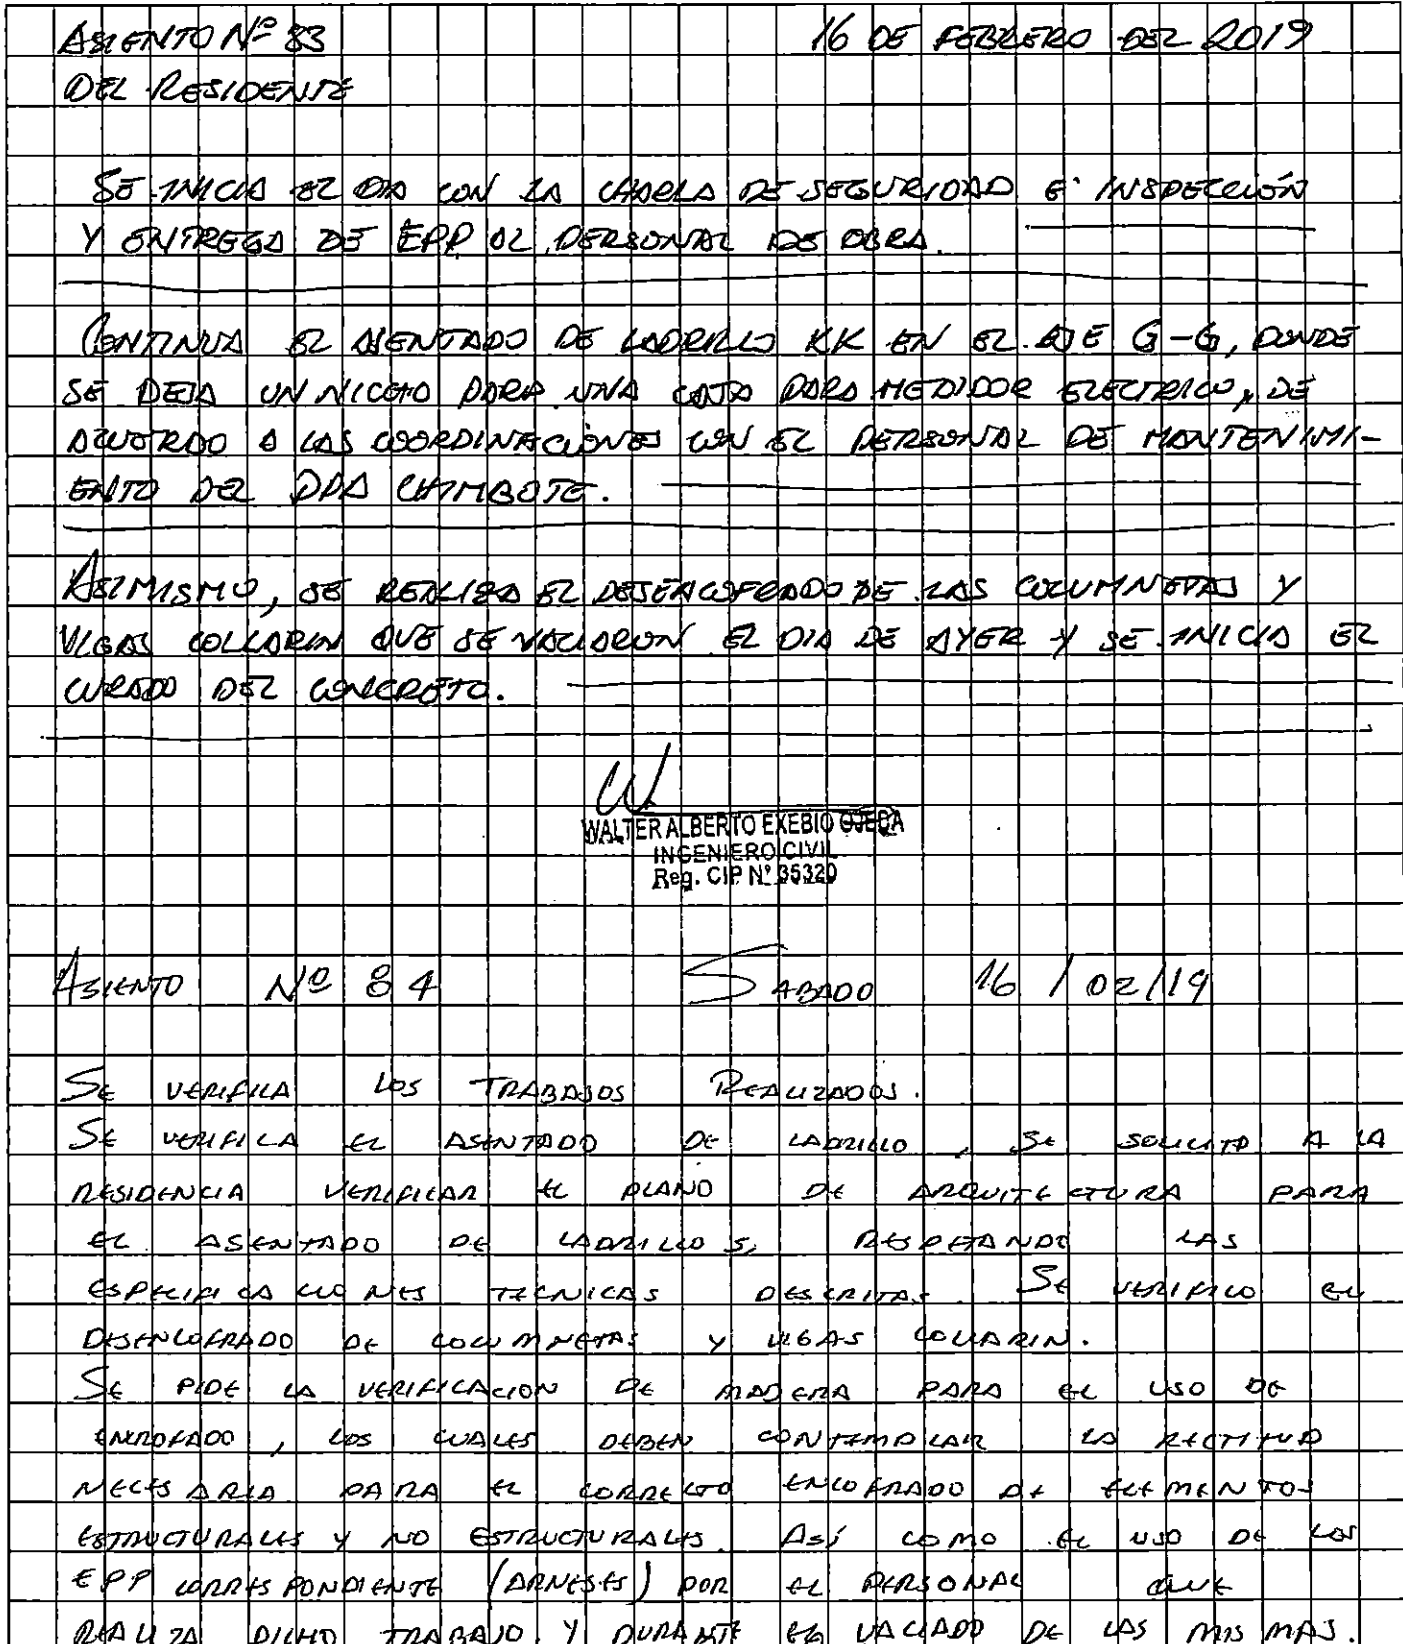 ASIENTO Nº 83 16 DE FEBRERO DEL 2019
DEL RESIDENTE
SE INICIA EL DIA CON LA CHARLA DE SEGURIDAD E INSPECCIÓN
Y ENTREGA DE EPP AL PERSONAL DE OBRA.
CONTINUA EL ASENTADO DE LADRILLO KK EN EL EJE G-G, DONDE
SE DEJA UN NICHO PARA UNA CAJA PARA MEDIDOR ELECTRICO, DE
ACUERDO A LAS COORDINACIONES CON EL PERSONAL DE MANTENIMI-
ENTO DEL DPA CHIMBOTE.
ASIMISMO, SE REALIZA EL DESENCOFRADO DE LAS COLUMNETAS Y
VIGAS COLLARIN QUE SE VACIARON EL DIA DE AYER Y SE INICIA EL
CURADO DEL CONCRETO.
WALTER ALBERTO EXEBIO OJEDA
INGENIERO CIVIL
Reg. CIP Nº 35320
ASIENTO Nº 84 SABADO 16/02/19
SE VERIFICA LOS TRABAJOS REALIZADOS.
SE VERIFICA EL ASENTADO DE LADRILLO, SE SOLICITA A LA
RESIDENCIA VERIFICAR EL PLANO DE ARQUITECTURA PARA
EL ASENTADO DE LADRILLOS, RESPETANDO LAS
ESPECIFICACIONES TECNICAS DESCRITAS. SE VERIFICO EL
DESENCOFRADO DE COLUMNETAS Y VIGAS COLLARIN.
SE PIDE LA VERIFICACION DE MADERA PARA EL USO DE
ENCOFRADO, LOS CUALES DEBEN CONTEMPLAR LA RECTITUD
NECESARIA PARA EL CORRECTO ENCOFRADO DE ELEMENTOS
ESTRUCTURALES Y NO ESTRUCTURALES. ASÍ COMO EL USO DE LOS
EPP CORRESPONDIENTE (ARNESES) POR EL PERSONAL QUE
REALIZA DICHO TRABAJO Y DURANTE EL VACIADO DE LAS MISMAS.